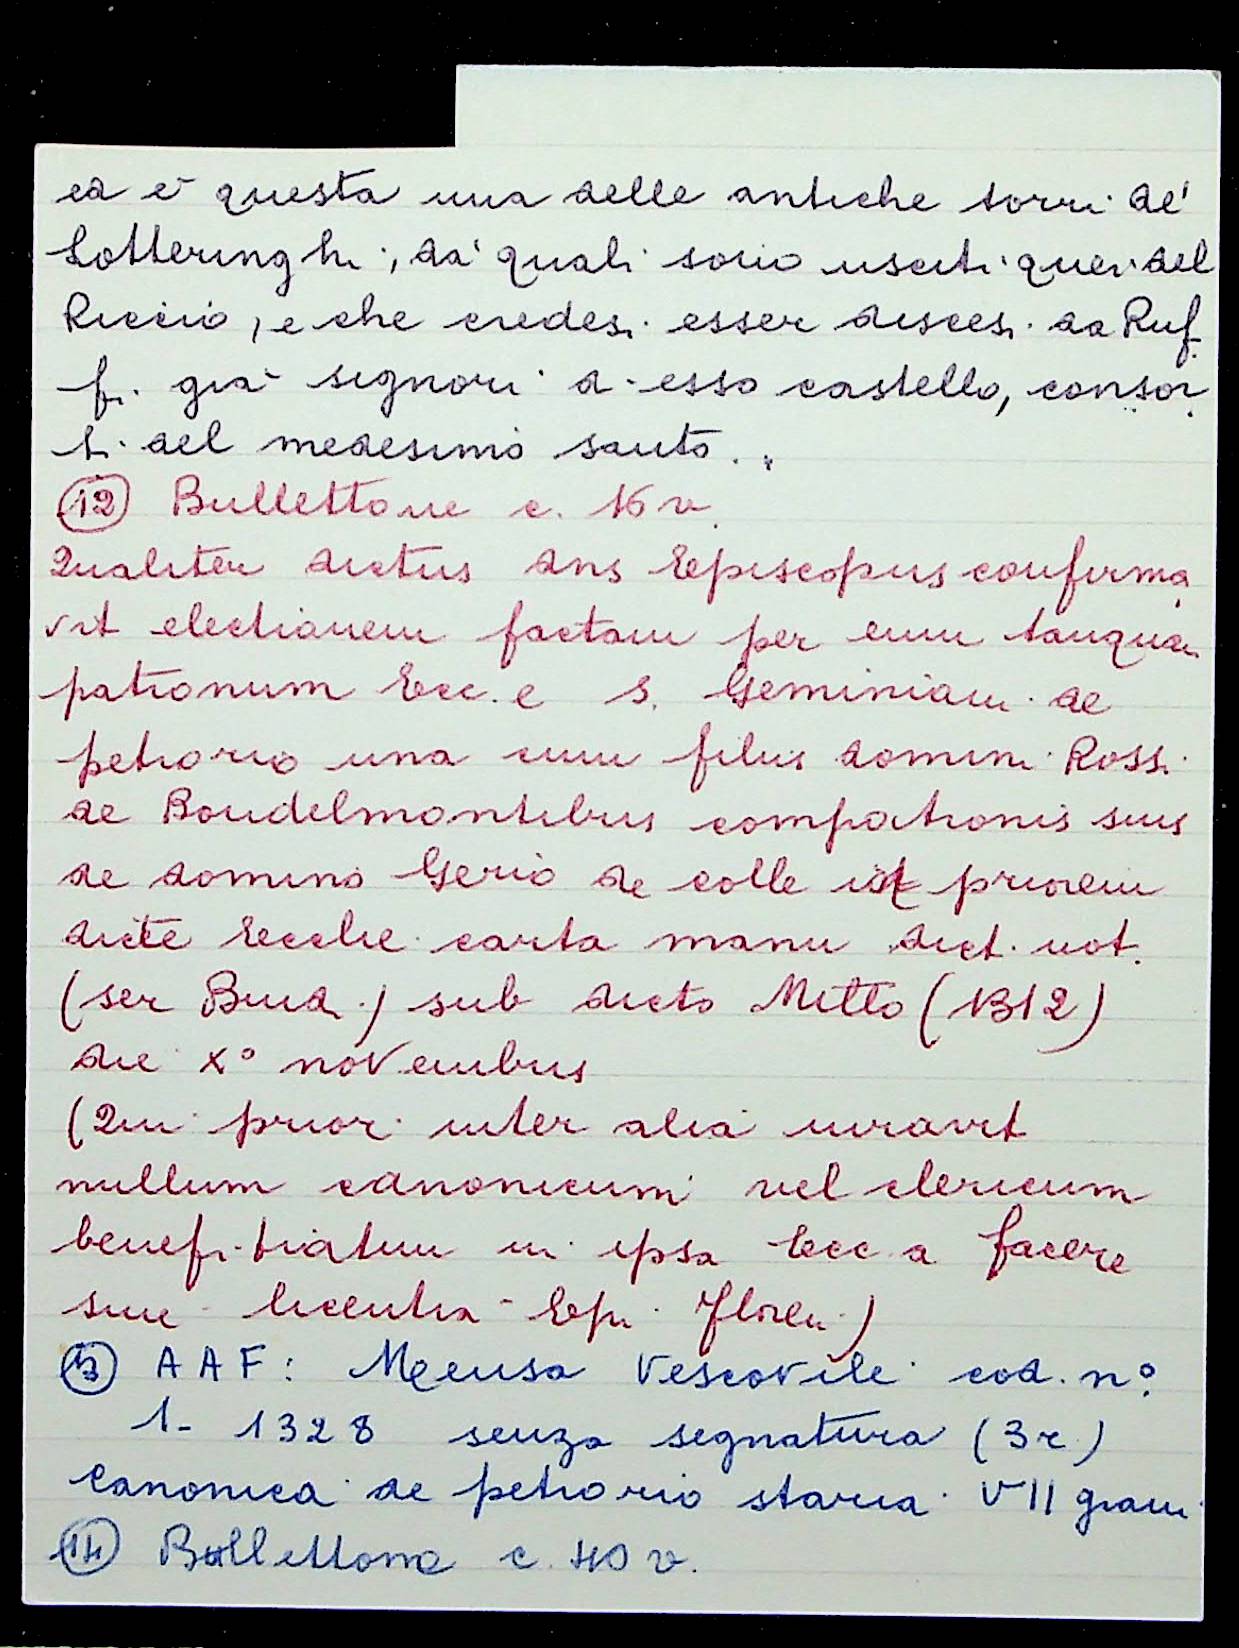 ed è questa una delle antiche torri de'
Lottheringhi, da' quali sono usciti quei del
Riccio, e che credesi esser discesi da Ruf
fi già signori d'esso castello, consor
ti del medesimo santo.
(12) Bullettone c. 16 v.
Qualiter dictus dns Episcopus confirma
vit electionem factam per eum tanquam
patronum Ecc.e S. Geminiani de
petroio una cum filiis domini Rossi
de Bondelmontibus compatronis suis
de domino Gerio de colle in priorem
dicte Ecclie carta manu dict. not.
(ser Buid.) sub dicto Mitto (1312)
die X° novembris
(Qui prior inter alia iuravit
nullum canonicum vel clericum
benefitiatum in ipsa Ecc.a facere
sine licentia Epi Floren.)
(13) AAF: Mensa Vescovile cod. n°
1 - 1328 senza segnatura (3r)
Canonica de petroio staria VII gran
(14) Bullettone c. 40 v.